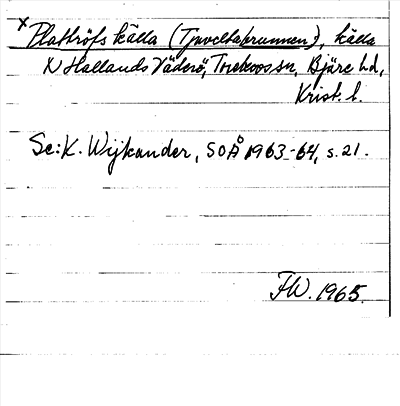 x Plattröfs källa (Tjuvaltabrunnen), källa
N Hallands Väderö, Torekovs sn, Bjäre hd,
Krist. l.
Se: K. Wijkander, SOÅ 1963-64, s. 21.
FW. 1965.